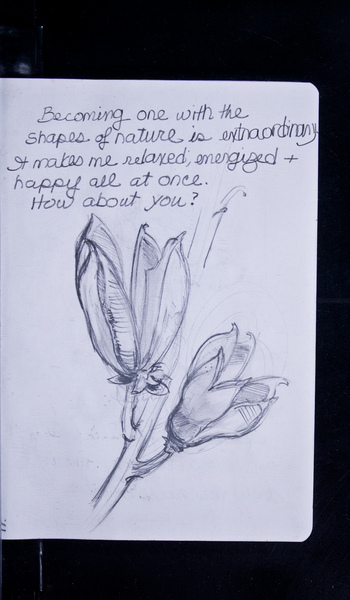 Becoming one with the
shapes of nature is extraordinary
It makes me relaxed, energized +
happy all at once.
How about you?